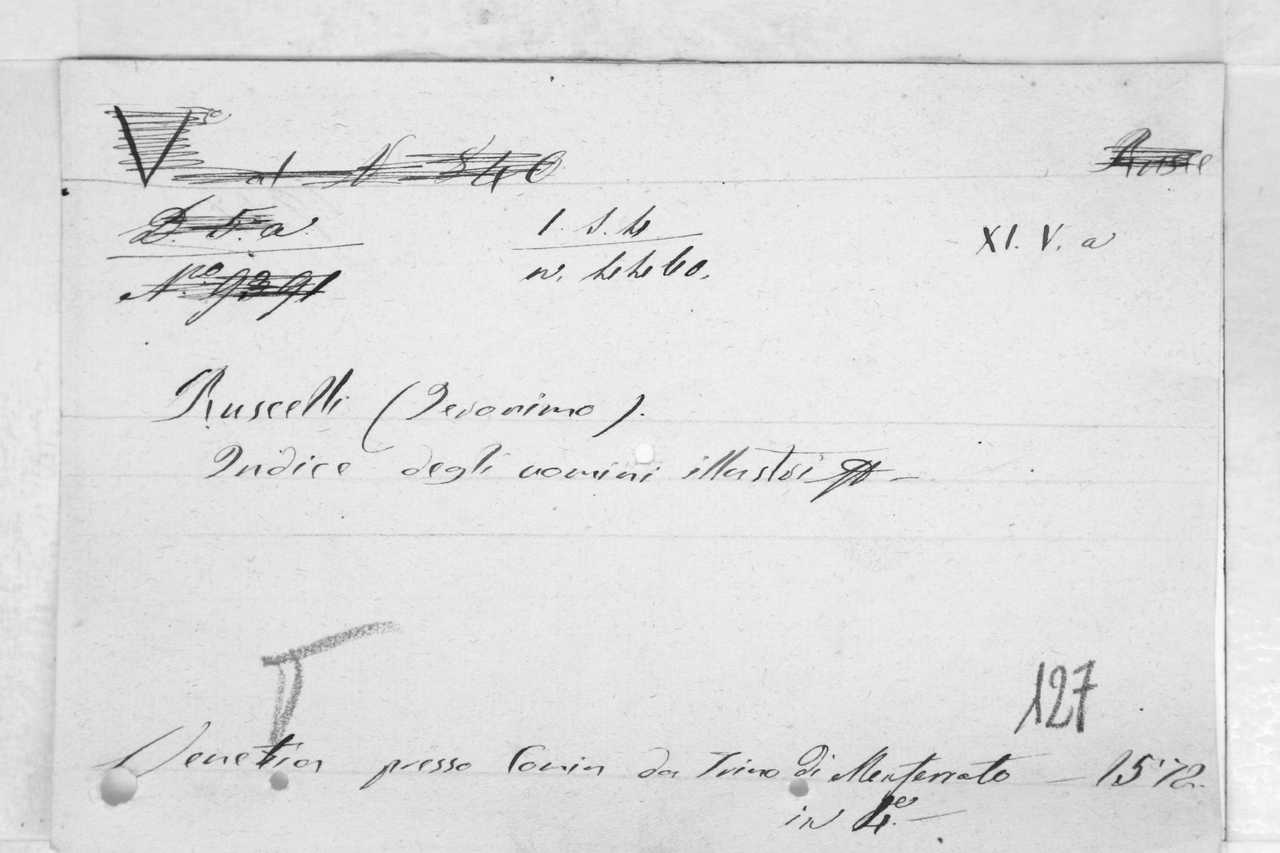 V al N 840
Rusc
D. 5. a
1. S. 4
XI. V. a
N.ro 9391
n. 4460.
Ruscelli (Jeronimo).
Indice degli uomini illustri —
127
Venetia presso Comin da Trino di Monferrato — 1572.
in 4.° —